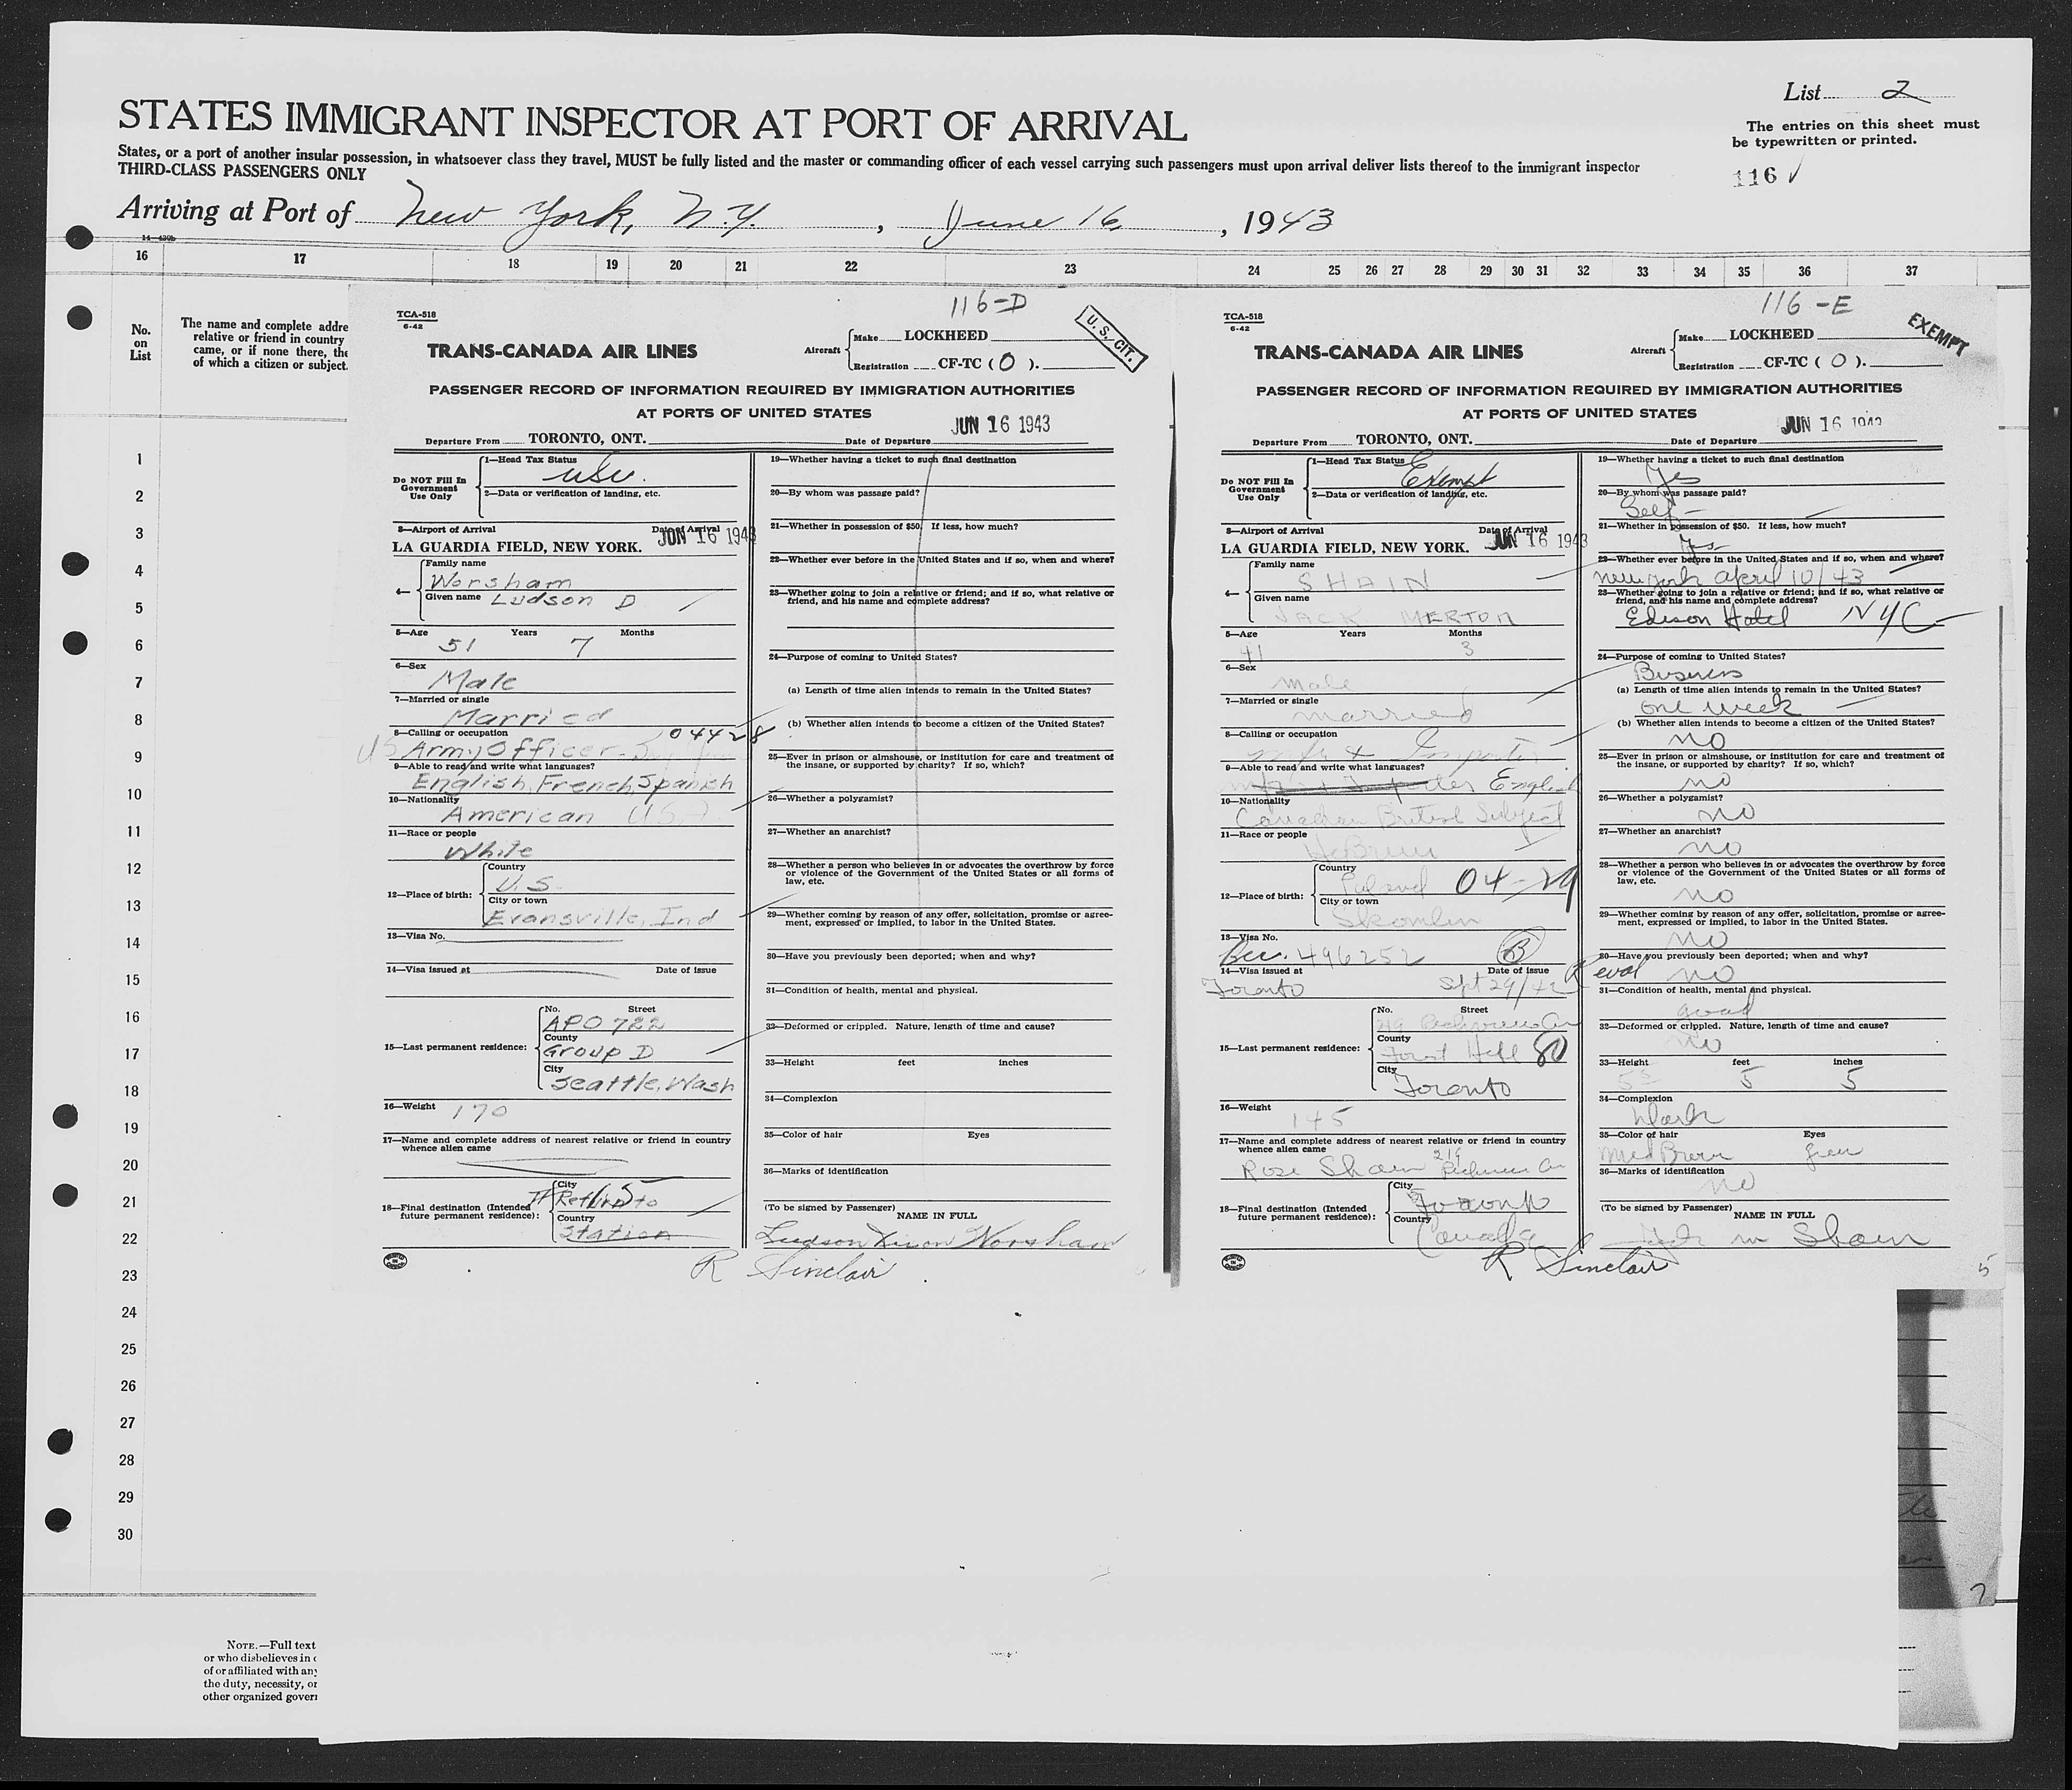 List 2
STATES IMMIGRANT INSPECTOR AT PORT OF ARRIVAL
The entries on this sheet must
be typewritten or printed.
States, or a port of another insular possession, in whatsoever class they travel, MUST be fully listed and the master or commanding officer of each vessel carrying such passengers must upon arrival deliver lists thereof to the immigrant inspector
THIRD-CLASS PASSENGERS ONLY
116 ✓
Arriving at Port of New York, N.Y. , June 16, , 1943
14-430b
16 17 18 19 20 21 22 23 24 25 26 27 28 29 30 31 32 33 34 35 36 37
No.
on
List
The name and complete addre
relative or friend in country
came, or if none there, the
of which a citizen or subject.
1
2
3
4
5
6
7
8
9
10
11
12
13
14
15
16
17
18
19
20
21
22
23
24
25
26
27
28
29
30
NOTE.—Full text
or who disbelieves in
of or affiliated with any
the duty, necessity, or
other organized gover
116-D
TCA-518
6-42
U. S. CIT.
TRANS-CANADA AIR LINES
Aircraft Make LOCKHEED
Registration CF-TC ( O ).
PASSENGER RECORD OF INFORMATION REQUIRED BY IMMIGRATION AUTHORITIES
AT PORTS OF UNITED STATES
JUN 16 1943
Departure From TORONTO, ONT. Date of Departure
Do NOT Fill In
Government
Use Only
1—Head Tax Status
2—Data or verification of landing, etc.
3—Airport of Arrival Date of Arrival
LA GUARDIA FIELD, NEW YORK. JUN 16 1943
4— Family name
Worsham
Given name Ludson D
5—Age Years Months
51 7
6—Sex
Male
7—Married or single
Married
8—Calling or occupation 04428
US Army Officer
9—Able to read and write what languages?
English, French, Spanish
10—Nationality
American USA
11—Race or people
White
12—Place of birth: Country
U.S.
City or town
Evansville, Ind
13—Visa No.
14—Visa issued at Date of issue
15—Last permanent residence: No. Street
APO 722
County
Group D
City
Seattle, Wash
16—Weight 170
17—Name and complete address of nearest relative or friend in country
whence alien came
18—Final destination (Intended
future permanent residence):
City
Return to
Country
Station
19—Whether having a ticket to such final destination
20—By whom was passage paid?
21—Whether in possession of $50. If less, how much?
22—Whether ever before in the United States and if so, when and where?
23—Whether going to join a relative or friend; and if so, what relative or
friend, and his name and complete address?
24—Purpose of coming to United States?
(a) Length of time alien intends to remain in the United States?
(b) Whether alien intends to become a citizen of the United States?
25—Ever in prison or almshouse, or institution for care and treatment of
the insane, or supported by charity? If so, which?
26—Whether a polygamist?
27—Whether an anarchist?
28—Whether a person who believes in or advocates the overthrow by force
or violence of the Government of the United States or all forms of
law, etc.
29—Whether coming by reason of any offer, solicitation, promise or agree-
ment, expressed or implied, to labor in the United States.
30—Have you previously been deported; when and why?
31—Condition of health, mental and physical.
32—Deformed or crippled. Nature, length of time and cause?
33—Height feet inches
34—Complexion
35—Color of hair Eyes
36—Marks of identification
(To be signed by Passenger)
NAME IN FULL
Ludson Dixon Worsham
R Sinclair
116-E
TCA-518
6-42
EXEMPT
TRANS-CANADA AIR LINES
Aircraft Make LOCKHEED
Registration CF-TC ( O ).
PASSENGER RECORD OF INFORMATION REQUIRED BY IMMIGRATION AUTHORITIES
AT PORTS OF UNITED STATES
JUN 16 1943
Departure From TORONTO, ONT. Date of Departure
Do NOT Fill In
Government
Use Only
1—Head Tax Status
Exempt
2—Data or verification of landing, etc.
3—Airport of Arrival Date of Arrival
LA GUARDIA FIELD, NEW YORK. JUN 16 1943
4— Family name
SHAIN
Given name
JACK MERTON
5—Age Years Months
41 3
6—Sex
Male
7—Married or single
married
8—Calling or occupation
9—Able to read and write what languages?
English
10—Nationality
Canadian British Subject
11—Race or people
Hebrew
12—Place of birth: Country
Poland 04-29
City or town
13—Visa No.
496252 B
14—Visa issued at Date of issue
Toronto Sept 29/42
15—Last permanent residence: No. Street
County
Forest Hill
City
Toronto
16—Weight
145
17—Name and complete address of nearest relative or friend in country
whence alien came
Rose Shain 219
18—Final destination (Intended
future permanent residence):
City
Toronto
Country
Canada
19—Whether having a ticket to such final destination
Yes
20—By whom was passage paid?
Self
21—Whether in possession of $50. If less, how much?
Yes
22—Whether ever before in the United States and if so, when and where?
New York April 10/43
23—Whether going to join a relative or friend; and if so, what relative or
friend, and his name and complete address?
Edison Hotel NYC
24—Purpose of coming to United States?
Business
(a) Length of time alien intends to remain in the United States?
one week
(b) Whether alien intends to become a citizen of the United States?
no
25—Ever in prison or almshouse, or institution for care and treatment of
the insane, or supported by charity? If so, which?
no
26—Whether a polygamist?
no
27—Whether an anarchist?
no
28—Whether a person who believes in or advocates the overthrow by force
or violence of the Government of the United States or all forms of
law, etc.
no
29—Whether coming by reason of any offer, solicitation, promise or agree-
ment, expressed or implied, to labor in the United States.
no
30—Have you previously been deported; when and why?
no
31—Condition of health, mental and physical.
good
32—Deformed or crippled. Nature, length of time and cause?
no
33—Height feet inches
5 5
34—Complexion
Dark
35—Color of hair Eyes
Med Brown green
36—Marks of identification
no
(To be signed by Passenger)
NAME IN FULL
Jack M Shain
R Sinclair